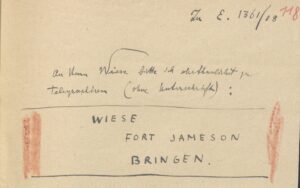 Zu E. 1361/18 118
An Herrn Wiese bitte ich
telegraphieren (ohne Unterschrift):
WIESE
FORT JAMESON
BRINGEN.